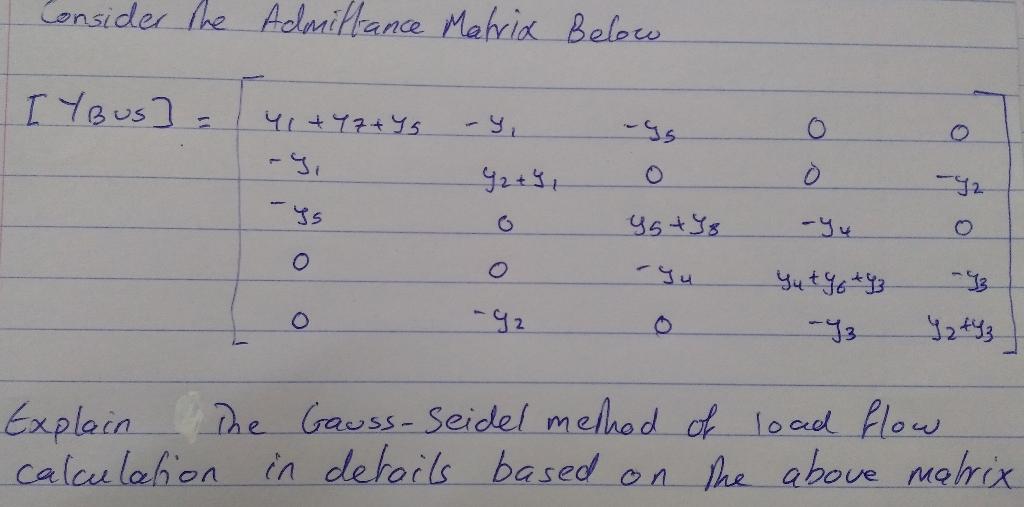 Consider The Admittance Matrix Below
[YBUS] = y1 + y7 + y5 -y1 -y5 0 0
-y1 y2 + y1 0 0 -y2
-y5 0 y5 + y8 -y4 0
0 0 -y4 y4 + y6 + y3 -y3
0 -y2 0 -y3 y2 + y3
Explain The Gauss-Seidel method of load flow
calculation in details based on The above matrix